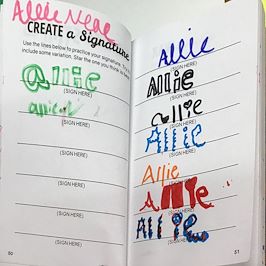 Allie Neal
CREATE a Signature
Use the lines below to practice your signature.
include some variation. Star the one you think
@llie
(SIGN HERE)
allie
(SIGN HERE)
(SIGN HERE)
(SIGN HERE)
(SIGN HERE)
(SIGN HERE)
(SIGN HERE)
50
Allie
(SIGN HERE)
Allie
(SIGN HERE)
allie
(SIGN HERE)
Allie
(SIGN HERE)
Allie
(SIGN HERE)
Allie
(SIGN HERE)
Allie
(SIGN HERE)
51